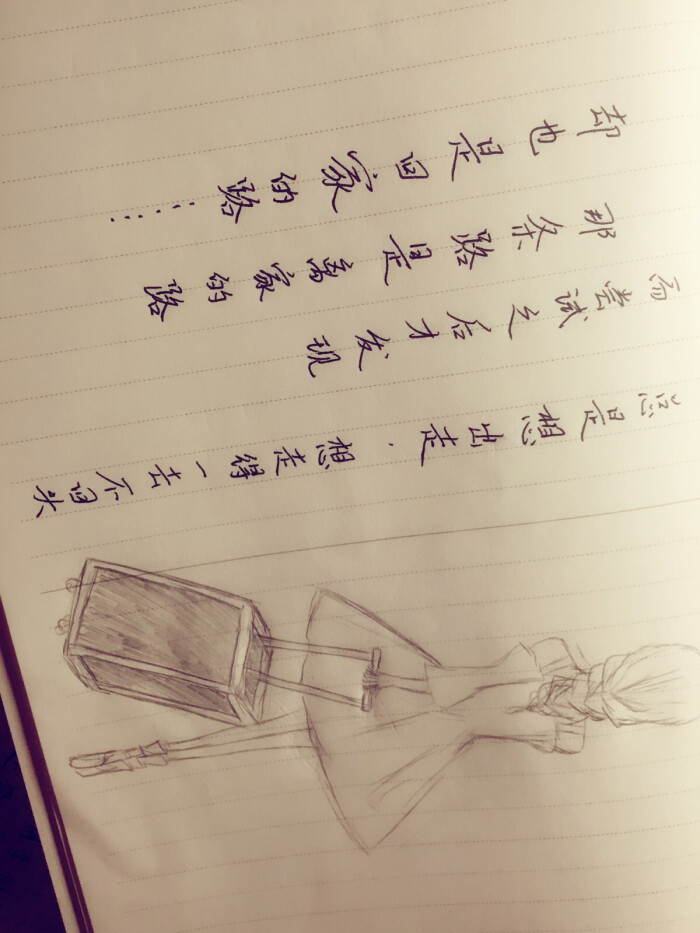 总是想出走.想走得一去不回头
而尝试之后才发现
那条路是离家的路
却也是回家的路……